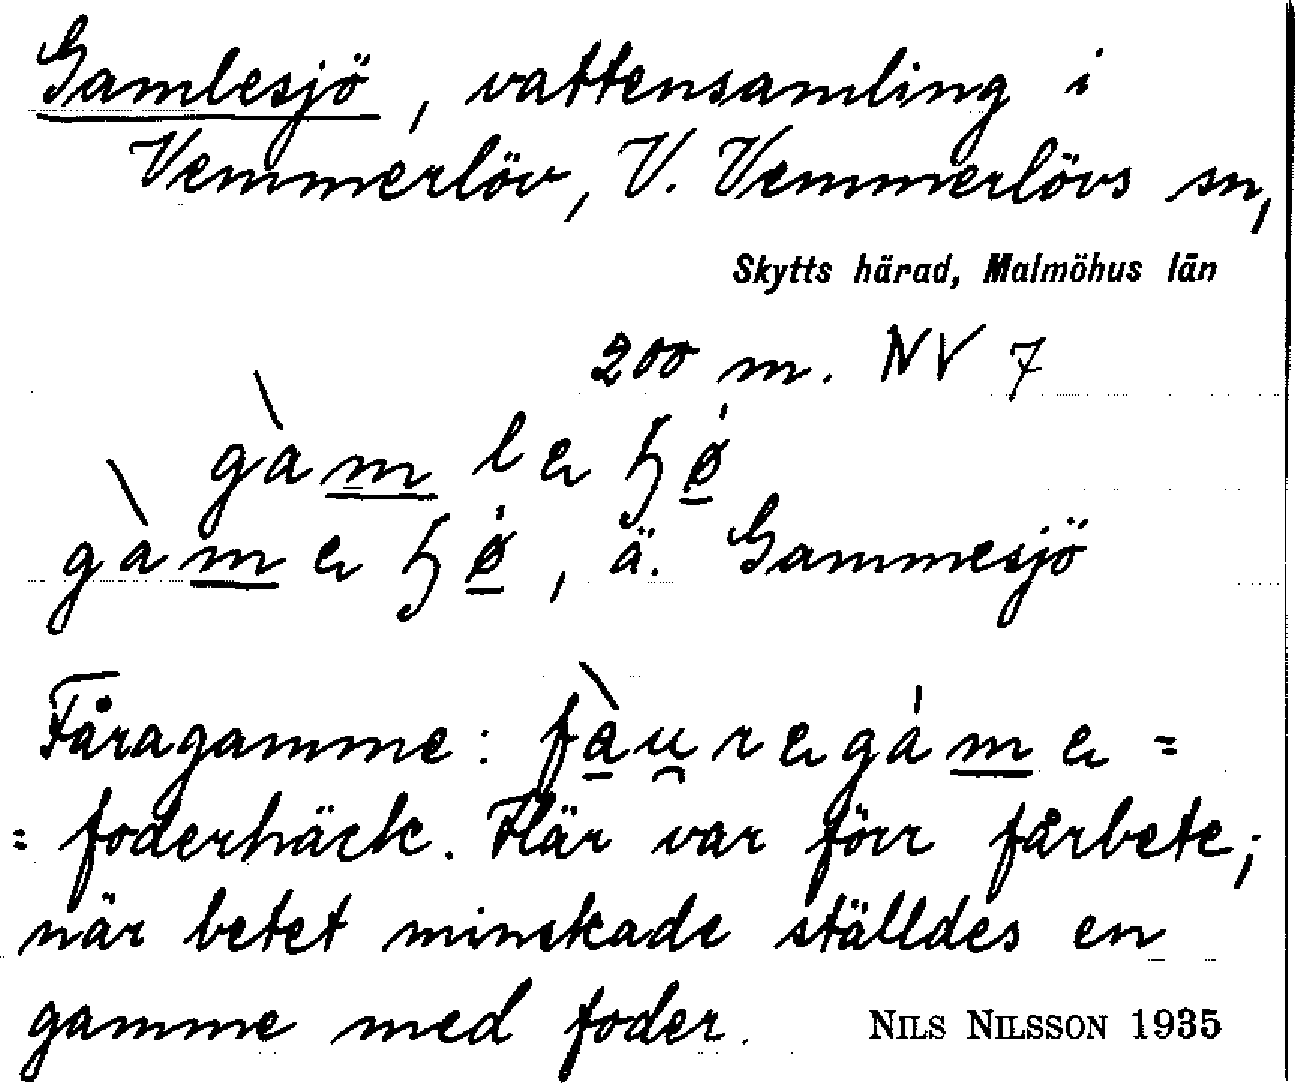 Gamlesjö, vattensamling i
Vemmerlöv, V. Vemmerlövs sn,
Skytts härad, Malmöhus län
200 m. NV 7
gàm le ɧø
gàme ɧø, ä. Gammesjö
Fåragamme: fàu̯regáme =
= foderhäck. Här var förr fårbete;
när betet minskade ställdes en
gamme med foder. NILS NILSSON 1935